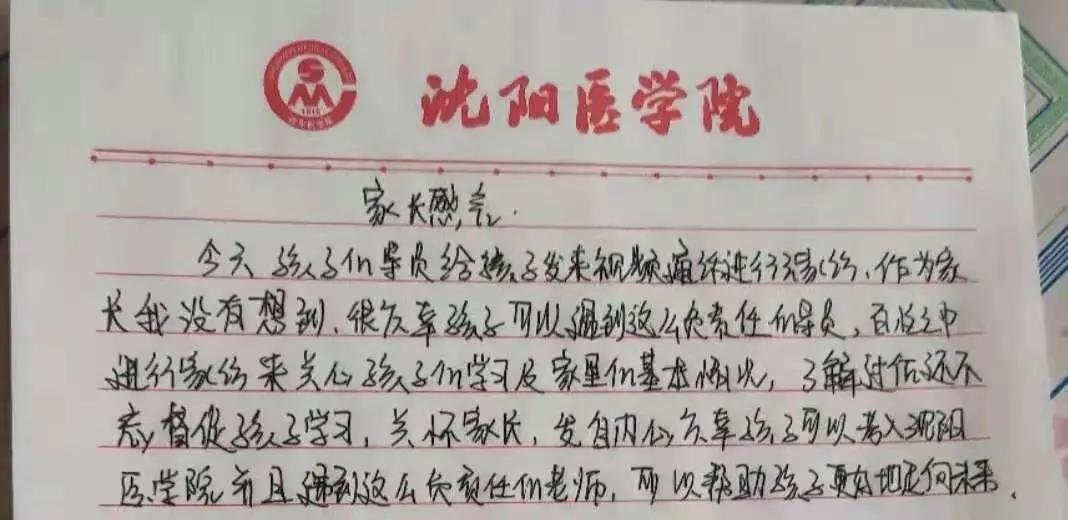 沈阳医学院
家长感言.
今天孩子们导员给孩子发来视频通话进行家访,作为家
长我没有想到,很庆幸孩子可以遇到这么负责任的导员,百忙之中
进行家访来关心孩子的学习及家里的基本情况,了解过后还不
忘督促孩子学习,关怀家长,发自内心庆幸孩子可以考入沈阳
医学院并且遇到这么负责任的老师,可以帮助孩子更好地走向未来.